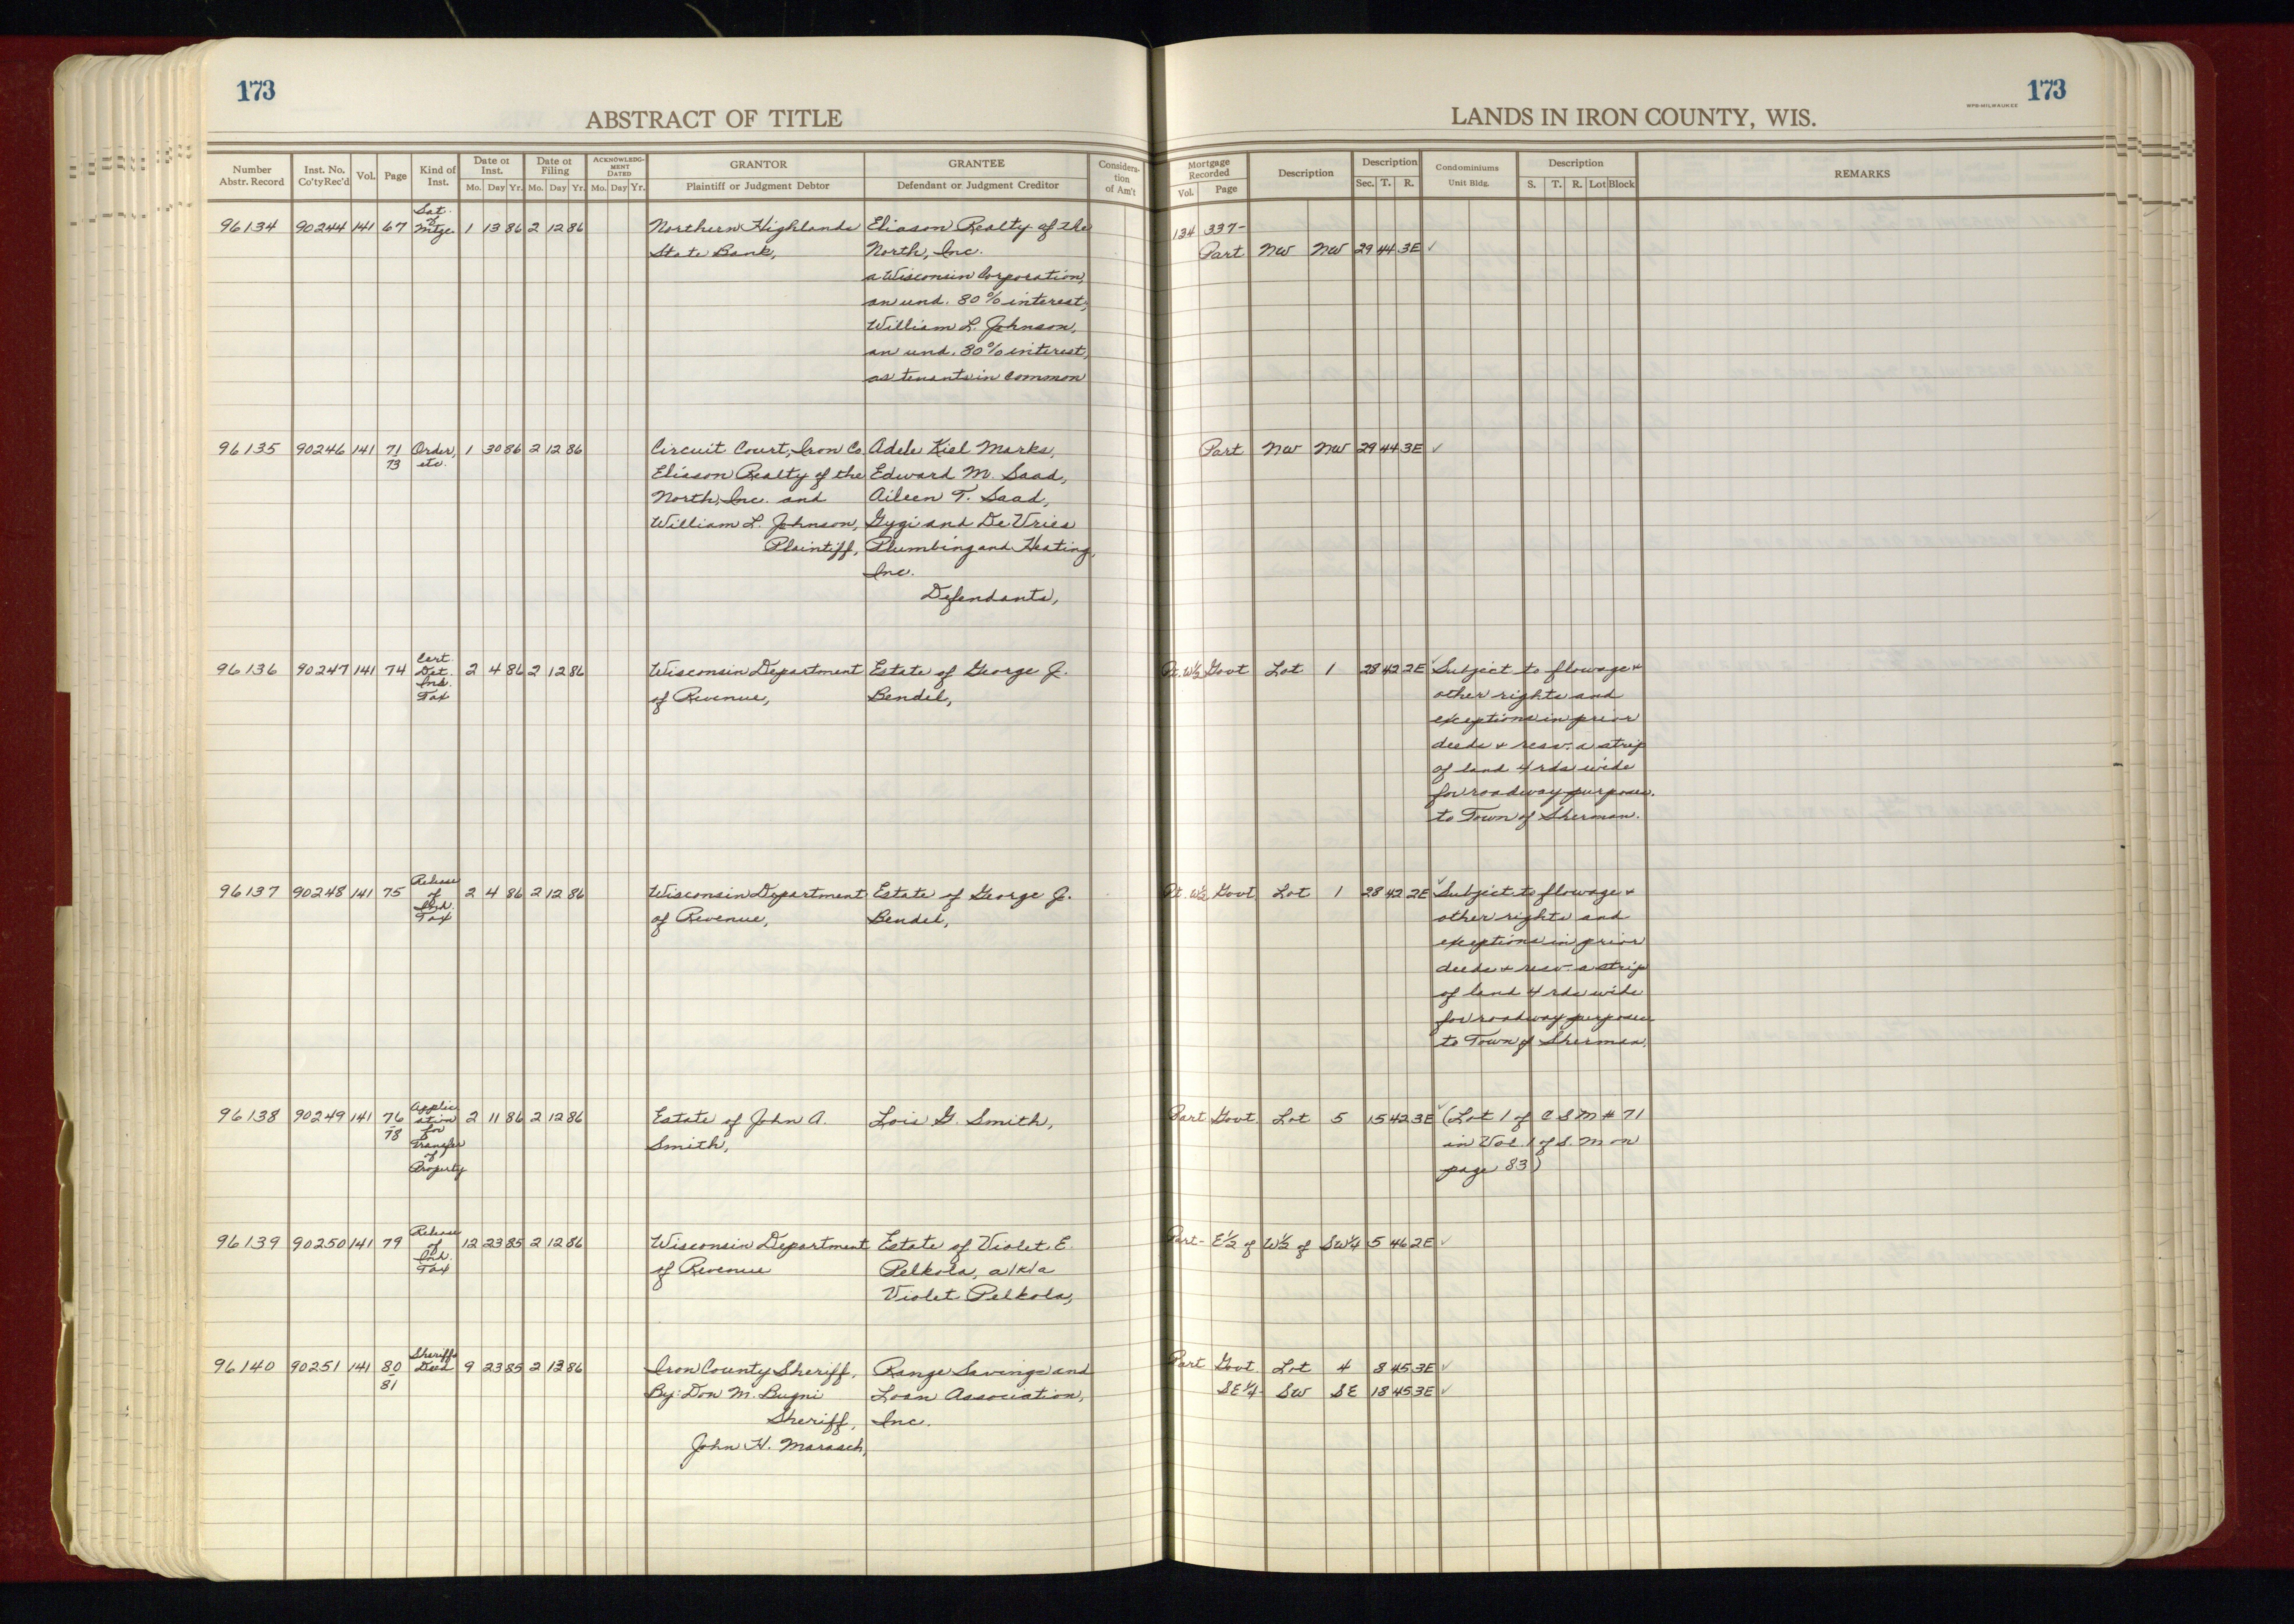 173
ABSTRACT OF TITLE
Number Abstr. Record | Inst. No. Co'ty Rec'd | Vol. | Page | Kind of Inst. | Date of Inst. Mo. Day Yr. | Date of Filing Mo. Day Yr. | ACKNOWLEDGMENT DATED Mo. Day Yr. | GRANTOR Plaintiff or Judgment Debtor | GRANTEE Defendant or Judgment Creditor | Consideration of Am't
96134 90244 141 67 Sat. of Mtge 1 13 86 2 12 86 Northern Highlands Eliason Realty of the
State Bank, North, Inc.
a Wisconsin Corporation,
an und. 80% interest,
William L. Johnson,
an und. 80% interest,
as tenants in common
96135 90246 141 71 Order, 1 30 86 2 12 86 Circuit Court, Iron Co. Adele Kiel Marks,
73 etc. Eliason Realty of the Edward M. Saad,
North, Inc. and Aileen T. Saad,
William L. Johnson, Gygi and De Vries
Plaintiff, Plumbing and Heating,
Inc.
Defendants,
96136 90247 141 74 Cert. Det. Inh. Tax 2 4 86 2 12 86 Wisconsin Department Estate of George J.
of Revenue, Bendel,
96137 90248 141 75 Release of Inh. Tax 2 4 86 2 12 86 Wisconsin Department Estate of George J.
of Revenue, Bendel,
96138 90249 141 76-78 Application for Transfer of Property 2 11 86 2 12 86 Estate of John A. Lois G. Smith,
Smith,
96139 90250 141 79 Release of Inh. Tax 12 23 85 2 12 86 Wisconsin Department Estate of Violet E.
of Revenue Pelkola, a/k/a
Violet Pelkola,
96140 90251 141 80-81 Sheriffs Deed 9 23 85 2 13 86 Iron County Sheriff, Range Savings and
By: Don M. Bugni Loan Association,
Sheriff, Inc.
John H. Marasch,
WPB-MILWAUKEE 173
LANDS IN IRON COUNTY, WIS.
Mortgage Recorded Vol. Page | Description | Description Sec. T. R. | Condominiums Unit Bldg. | Description S. T. R. Lot Block | REMARKS
134 337-
Part NW NW 29 44 3E ✓
Part NW NW 29 44 3E ✓
Pt. W½ Govt Lot 1 28 42 2E ✓ Subject to flowage +
other rights and
exceptions in prior
deeds + resv. a strip
of land 4 rds wide
for roadway purposes.
to Town of Sherman.
Pt. W½ Govt Lot 1 28 42 2E ✓ Subject to flowage +
other rights and
exceptions in prior
deeds + resv. a strip
of land 4 rds wide
for roadway purposes
to Town of Sherman.
Part Govt Lot 5 15 42 3E ✓ (Lot 1 of C S M # 71
in Vol. 1 of S. M on
page 83)
Part- E½ of W½ of SW¼ 5 46 2E ✓
Part Govt. Lot 4 8 45 3E ✓
SE¼ SW SE 18 45 3E ✓